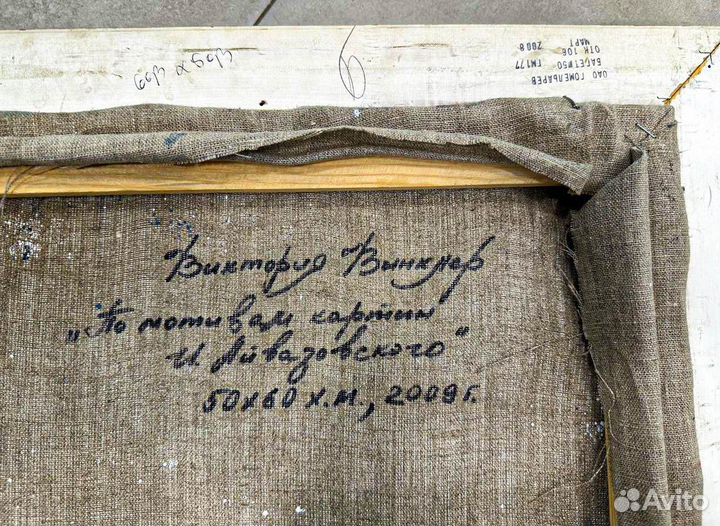 60В х 50В
б
ОАО ГОМЕЛЬБАРЕВ
БАГЕТ №50 ГМ177
ОТК 106
МАРТ 2008
Виктория Винклер
„По мотивам картин
И. Айвазовского"
50х60 х.м., 2009 г.
Avito